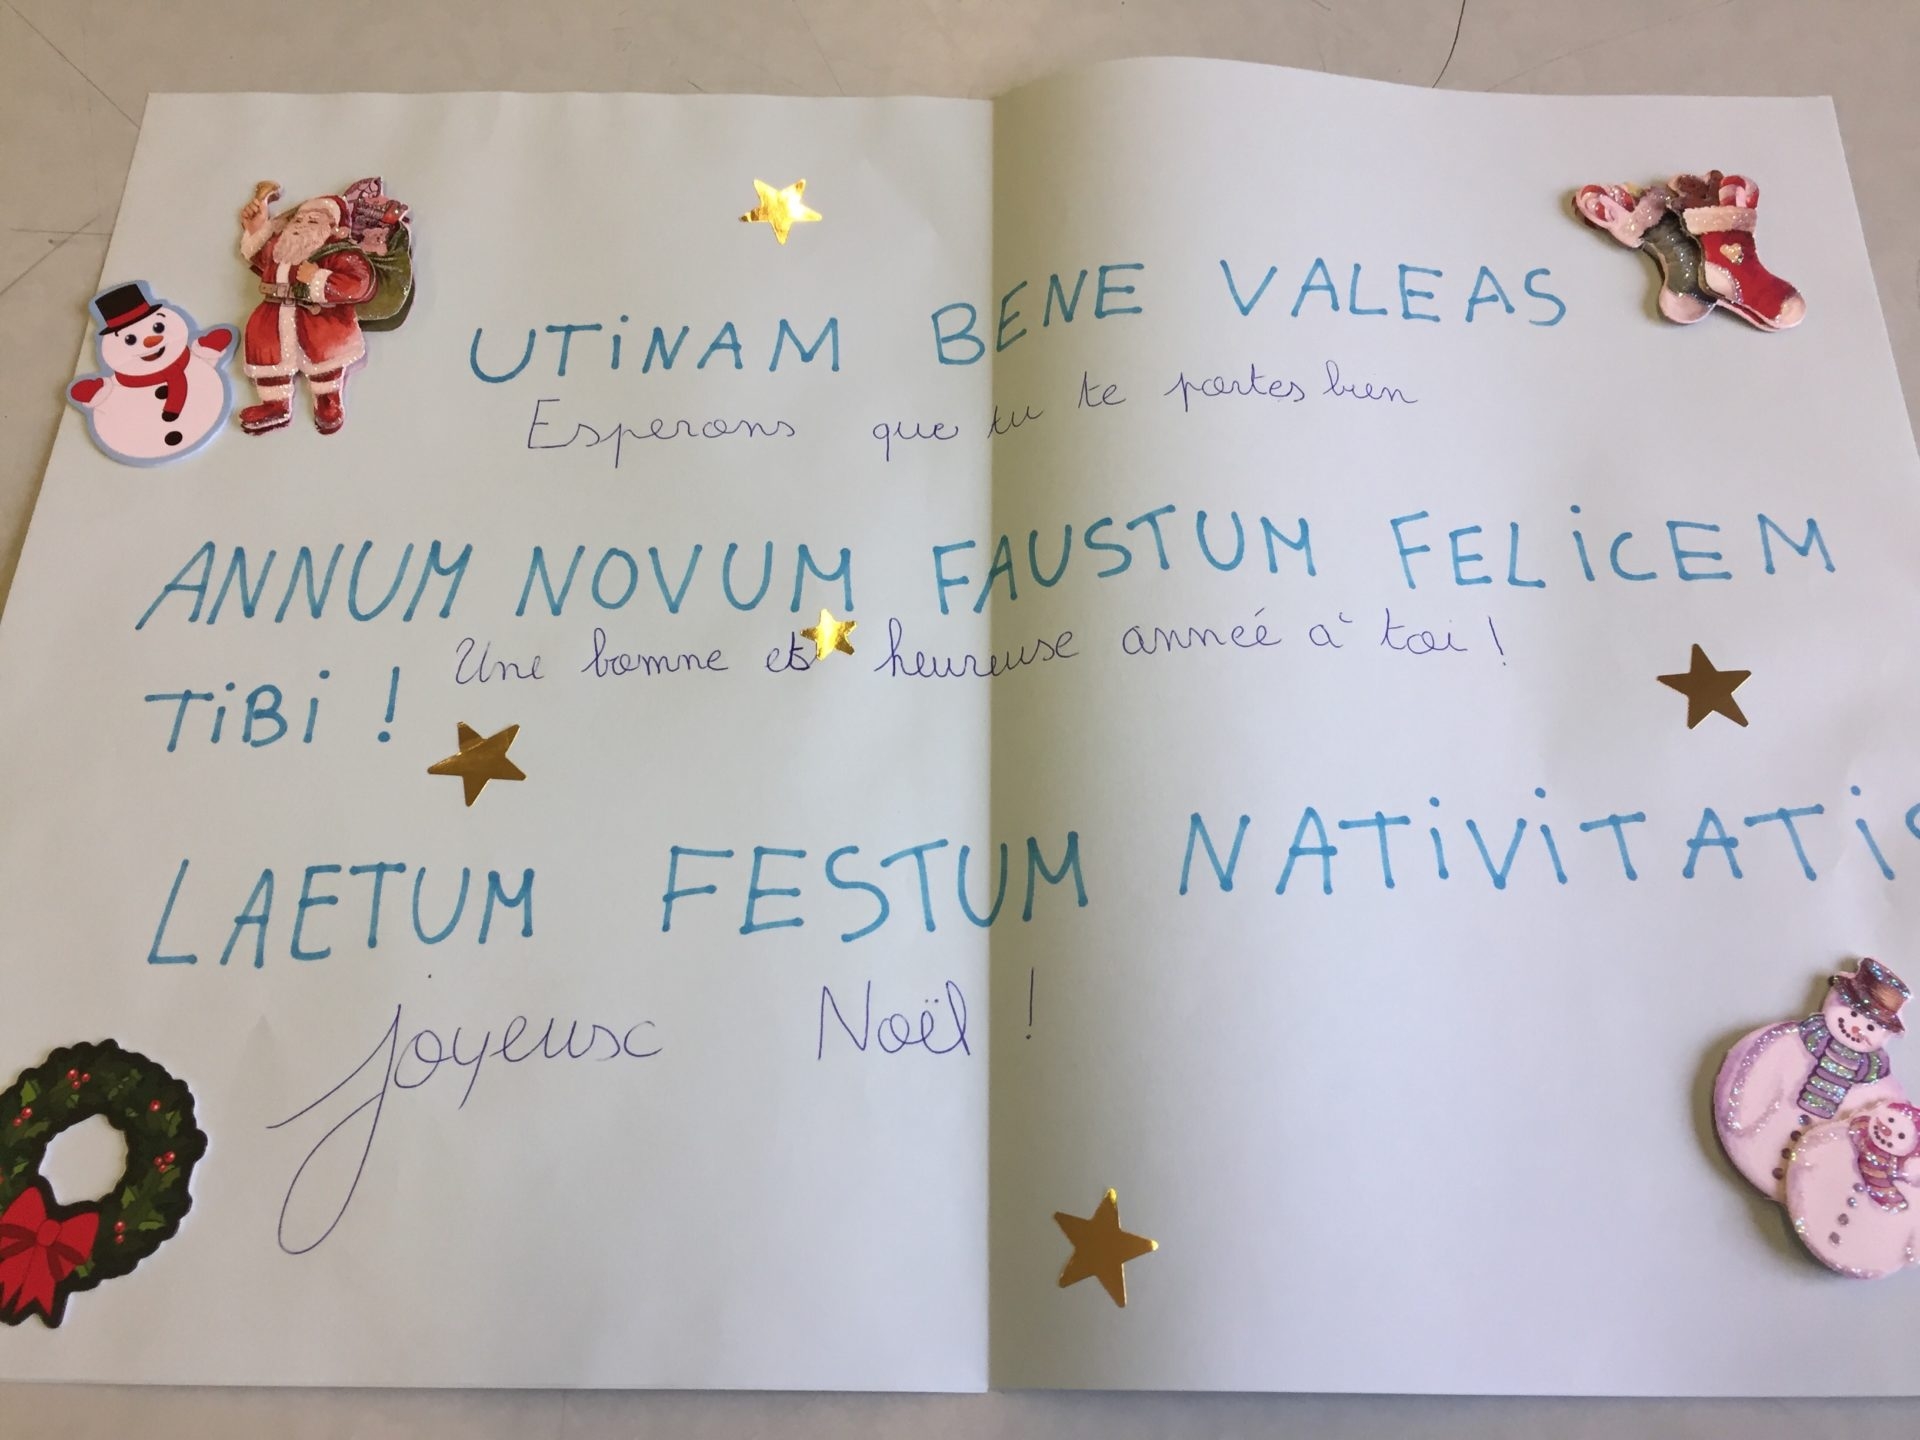 UTiNAM BENE VALEAS
Esperons que tu te portes bien
ANNUM NOVUM FAUSTUM FELiCEM
Une bonne et heureuse anneé à toi !
TiBi !
LAETUM FESTUM NATiViTATiS
Joyeuse Noël !